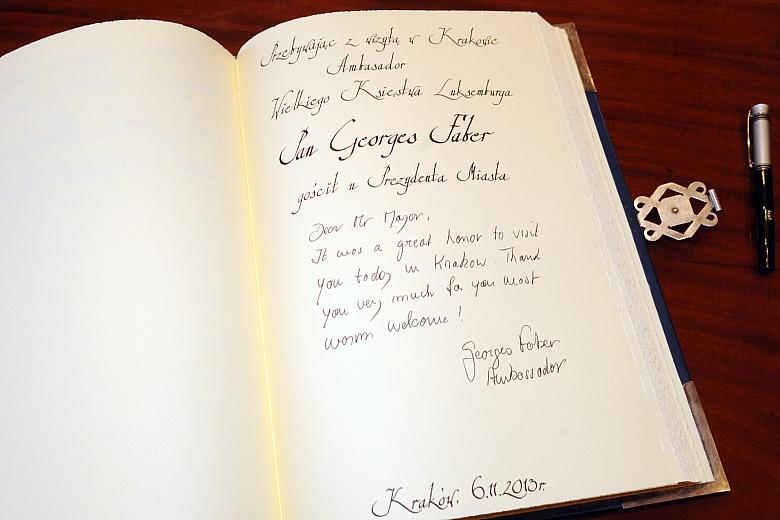 Przebywając z wizytą w Krakowie
Ambasador
Wielkiego Księstwa Luksemburga
Pan Georges Faber
gościł u Prezydenta Miasta
Dear Mr Mayor,
It was a great honor to visit
you today in Krakow. Thank
you very much for you most
warm welcome!
Georges Faber
Ambassador
Kraków, 6.11.2013r.